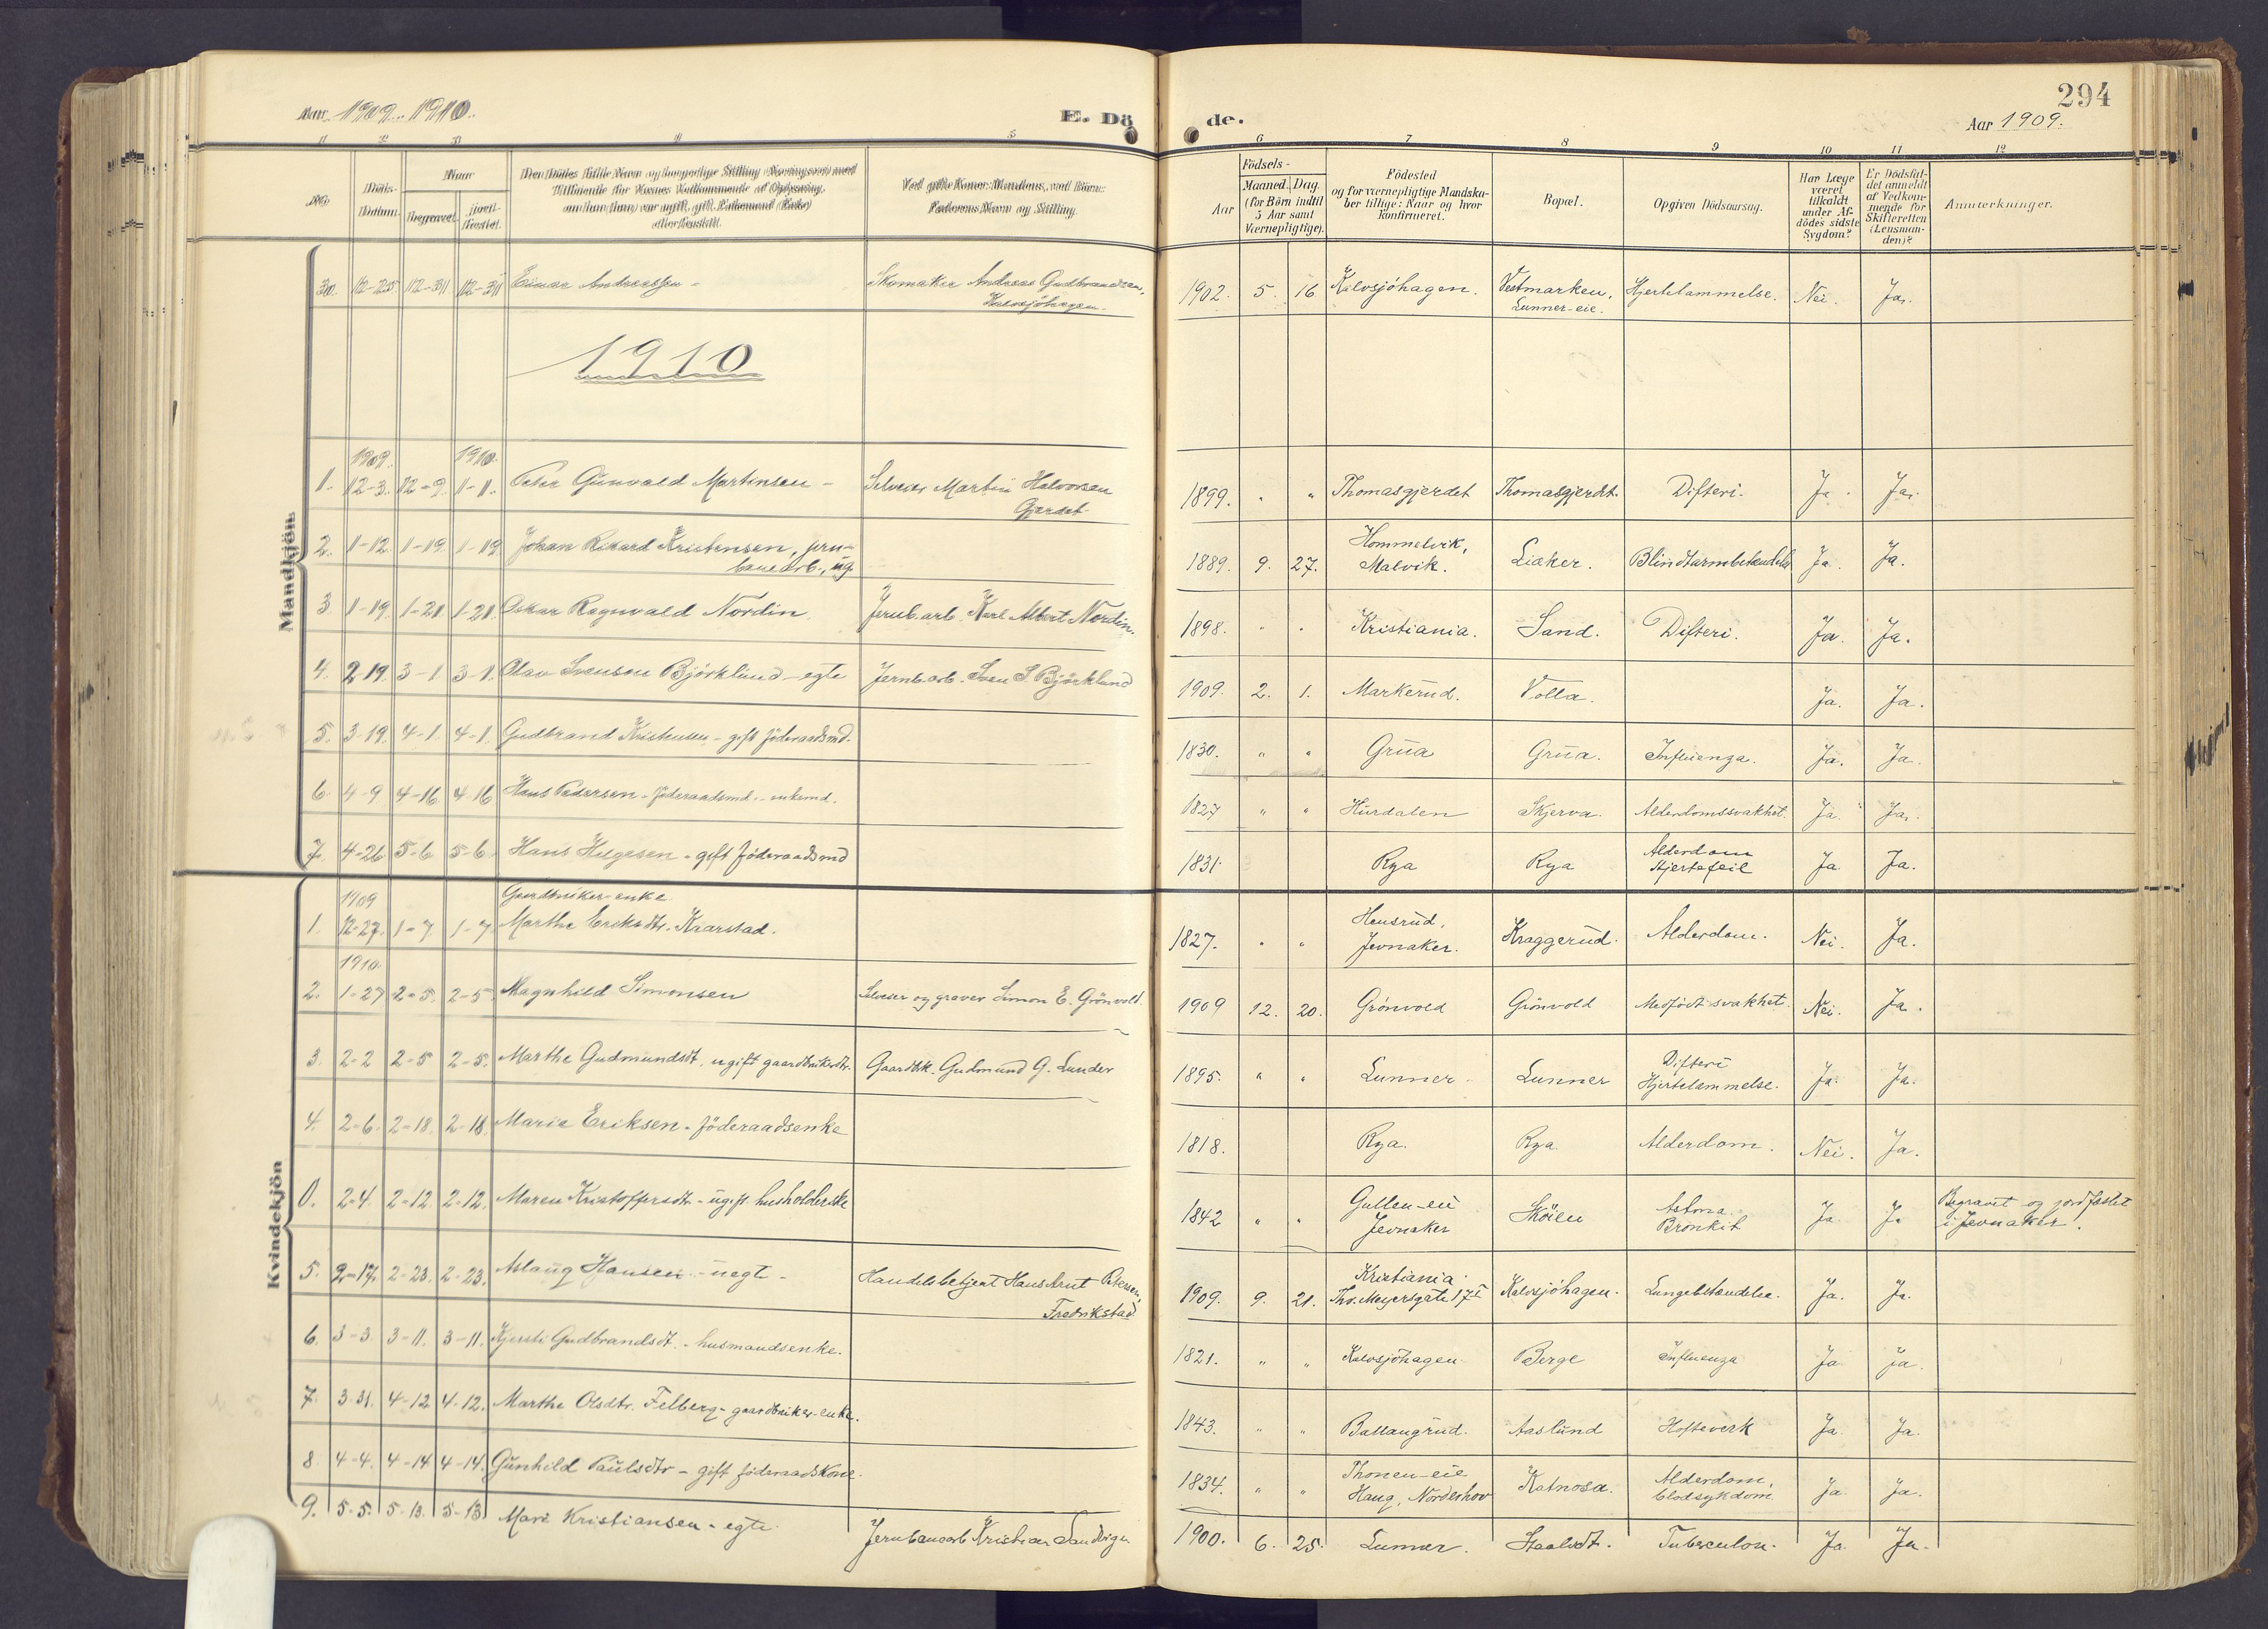 Aar 1909. 1910.
E. Dö
de.
294
Aar 1909.
1 2 3 4 5 6 7 8 9 10 11 12
No.
Döds-
Datum.
Naar
Begravet.
Jord-
fæstet.
Den Dödes fulde Navn og borgerlige Stilling
Ved gifte Koner: Mandens, ved Börn:
Faderens Navn og Stilling.
Födsels-
Aar
Maaned. Dag.
(for Börn indtil
5 Aar samt
Værnepligtige).
Födested
og for værnepligtige Mandska-
ber tillige: Naar og hvor
konfirmeret.
Bopæl.
Opgiven Dödsaarsag.
Har Læge
været
tilkaldt
under Af-
dödes sidste
Sygdom?
Er Dödsfal-
det anmeldt
af Vedkom-
mende for
Skifteretten
(Lensman-
den)?
Anmerkninger.
Mandkjön
30. 12-25 12-31 12-31 Einar Andreassen - Skomaker Andreas Gudbrandsen, Kalvsjöhagen. 1902. 5. 16 Kalvsjöhagen. Vestmarken, Lunner-eie. Hjertelammelse. Nei. Ja.
1910
1909. 1910.
1. 12-3. 12-9. 1-1. Peter Gunvald Martinsen - Selveier Martin Halvorsen Gjerdet. 1899. " " Thomasgjerdet Thomasgjerdet. Difteri. Ja. Ja.
2. 1-12 1-19. 1-19. Johan Rikard Kristensen, jern-
banearb., ug. 1889. 9. 27. Hommelvik, Malvik. Liaker. Blindtarmbetændelse Ja. Ja.
3. 1-19. 1-21. 1-21. Oskar Ragnvald Nordin. Jernb.arb. Karl Albert Nordin. 1898. " " Kristiania. Sand. Difteri. Ja. Ja.
4. 2 19. 3-1. 3-1. Olav Svensen Björklund - egte Jernb.arb. Sven S. Björklund 1909. 2. 1. Markerud. Volla. Ja. Ja.
5. 3-19. 4-1. 4-1. Gudbrand Kristensen - gift föderaadsmd. 1830. " " Grua Grua. Influenza. Ja. Ja.
6. 4-9 4-16 4-16 Hans Pedersen - föderaadsmd. - enkemd. 1827 " " Hurdalen Skjerva. Alderdomssvakhet. Ja. Ja.
7. 4-26 5-6 5-6 Hans Helgesen - gift föderaadsmd 1831 Rya Rya Alderdom Hjertefeil Ja. Ja.
Kvindekjön
1909 Gaardbruker-enke
1. 12-27. 1-7. 1-7 Marthe Eriksdtr. Kaarstad. 1827. " " Hensrud, Jevnaker. Kraggerud. Alderdom. Nei. Ja.
1910.
2. 1-27 2-5. 2-5. Magnhild Simonsen Selveier og graver Simon E. Grönvold. 1909 12. 20. Grönvold Grönvold Medfödt svakhet. Nei. Ja.
3. 2-2 2-5 2-5. Marthe Gudmundsdt. ugift gaardbrukerdtr. Gaardbk. Gudmund G. Lunder 1895. " " Lunner Lunner Difteri Hjertelammelse. Ja. Ja.
4. 2-6. 2-18. 2-18. Marie Eriksen - föderaadsenke 1818. Rya. Rya. Alderdom. Nei. Ja.
0. 2-4. 2-12. 2-12. Maren Kristoffersdt - ugift husholderske 1842 " " Gullen-eie Jevnaker Köien Astma Bronkit Ja. Ja Begravet og jordfæstet i Jevnaker.
5. 2-17. 2-23. 2-23. Aslaug Hansen - uegte - Handelsbetjent Hans Arnt Petersen, Fredrikstad 1909. 9. 21. Kristiania. Th. Meyersgate 17 I Kalvsjöhagen. Lungebetændelse. Ja. Ja.
6. 3-3. 3-11. 3-11. Kjersti Gudbrandsdt. - husmandsenke. 1821. " " Kalvsjöhagen. Berge Influenza Ja. Ja.
7. 3-31. 4-12 4-12. Marthe Olsdtr. Felberg - gaardbruker-enke. 1843. " " Ballangrud. Aaslund Hofteverk Ja. Ja.
8. 4-4. 4-14 4-14. Gunhild Paulsdtr - gift föderaadskone. 1834. " " Thonen-eie Haug, Norderhov Katnosa. Alderdom, blodsykdom Ja. Ja.
9. 5-5. 5-13. 5-13. Mari Kristiansen - egte Jernbanearb Kristian Sandvigen 1900. 6. 25. Lunner. Staalsdt. Tuberculose. Ja. Ja.